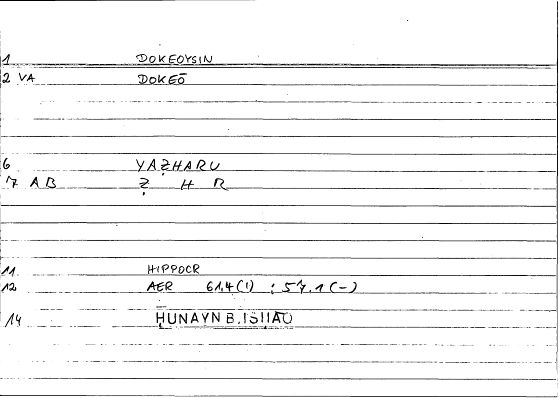 1 DOKEOYSIN
2 VA DOKEŌ
6 YAẒHARU
7 AB Ẓ H R
11 HIPPOCR
12 AER 61,4(1) : 57.1(-)
14 ḤUNAYN B. ISḤAQ